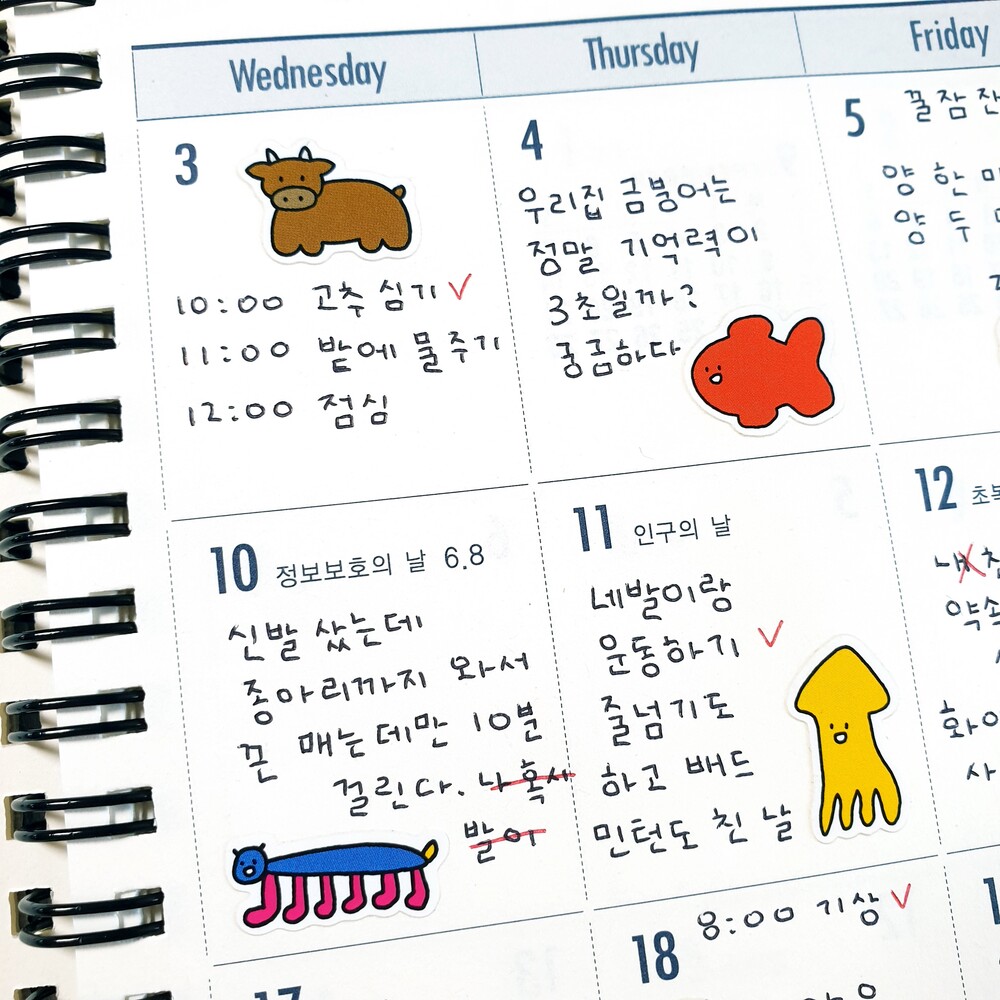 Wednesday
Thursday
Friday
3
10:00 고추 심기 ✓
11:00 밭에 물주기
12:00 점심
4
우리집 금붕어는
정말 기억력이
3초일까?
궁금하다
5
꿀잠
양 한
양 두
10 정보보호의 날 6.8
신발 샀는데
종아리까지 와서
끈 매는데만 10분
걸린다. 나 혹시
발이
11 인구의 날
네발이랑
운동하기 ✓
줄넘기도
하고 배드
민턴도 친 날
12
17
18
8:00 기상 ✓